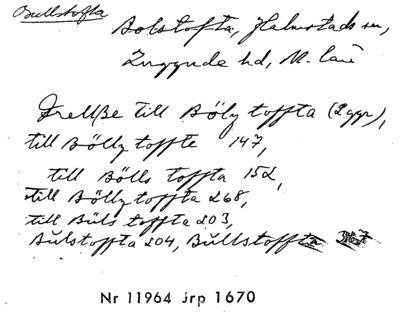 Bullstofta
Bolstofta, Halmstads sn,
Luggude hd, M. län
Frelsse till Böly toffta (2 ggr),
till Bölly toffte 147,
till Bölls toffta 152,
till Bölly toffta 268,
till Büls toffta 203,
Bülstoffta 204, Büllstoffta
Nr 11964 jrp 1670